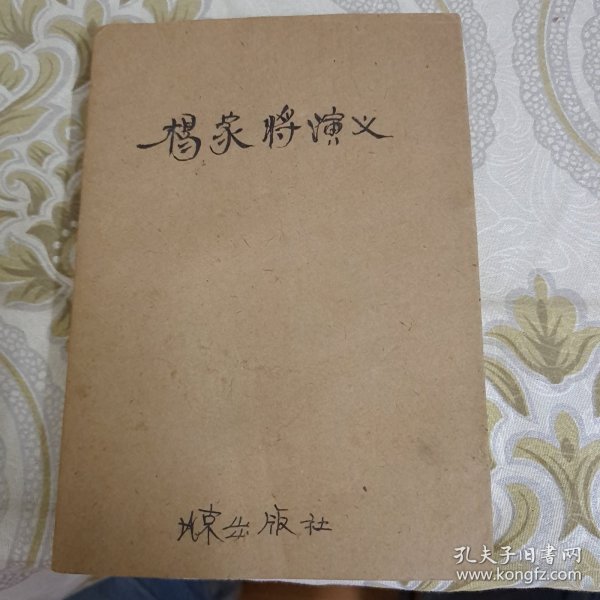 杨家将演义
北京出版社
孔夫子旧書网
www.kongfz.com